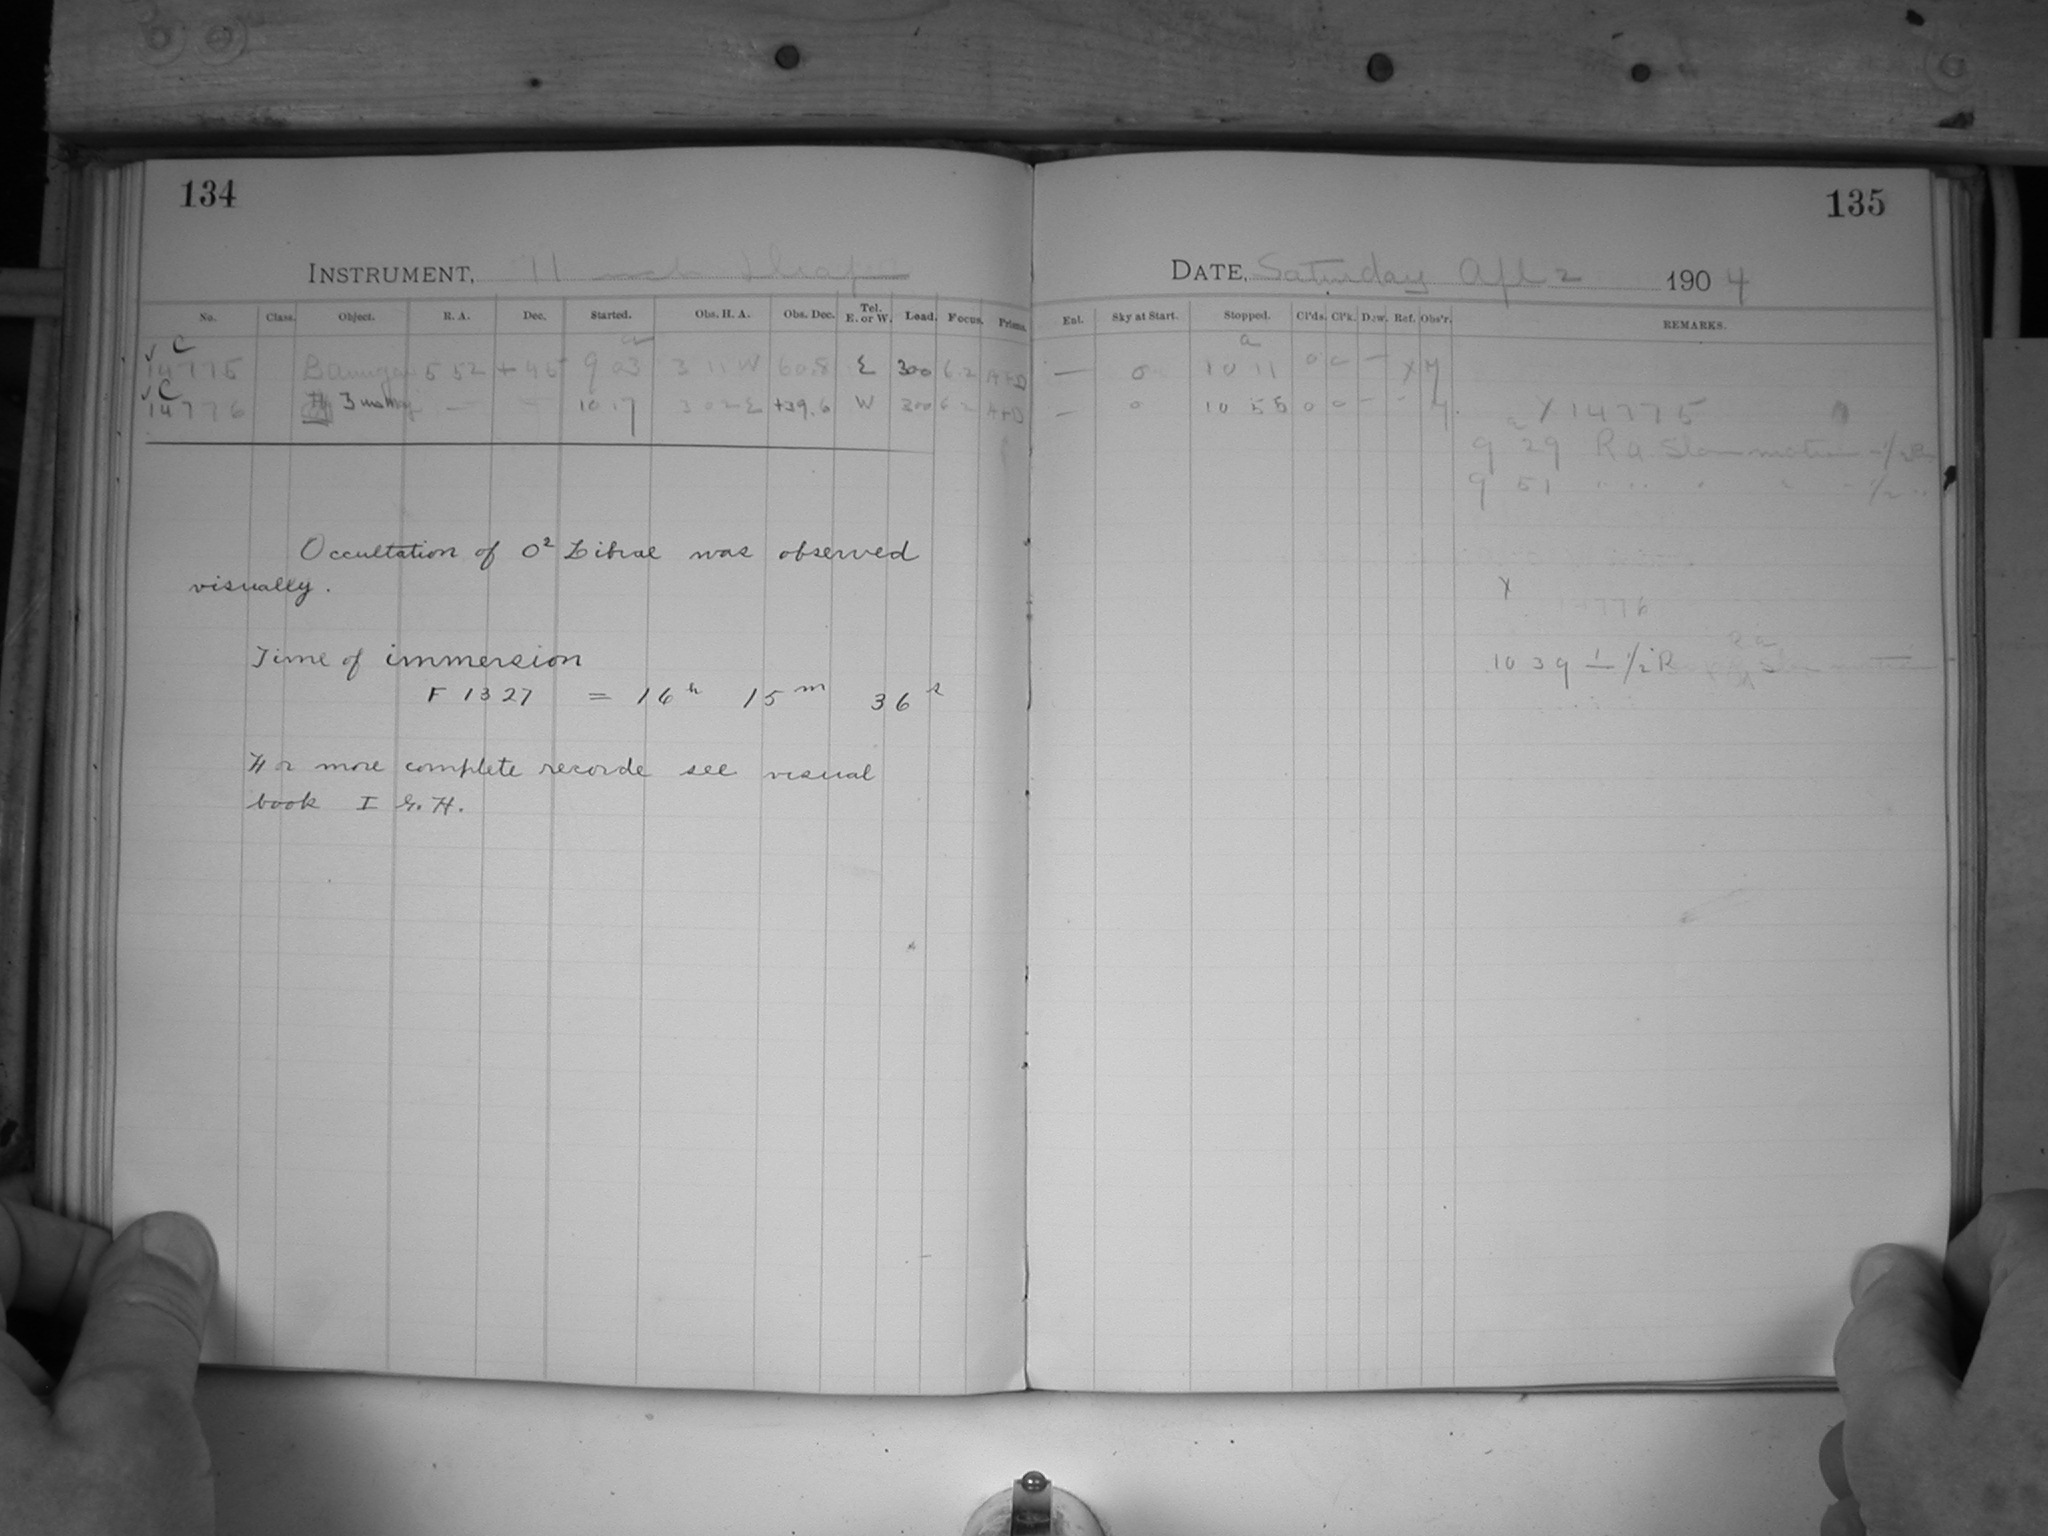 134
INSTRUMENT, 11 inch Draper
No. Class. Object. R. A. Dec. Started. Obs. H. A. Obs. Dec. Tel. E. or W. Load. Focus. Prisms.
√ C
14775 5 52 + 45 9 03 3 11 W 60.8 E 300 6.2
√ C
14776 10 17 3 02 E +39.6 W 300 6.2
Occultation of O² Librae was observed
visually.
Time of immersion
F 1327 = 16 h 15 m 36 s
For more complete records see visual
book I G. H.
135
DATE, Saturday Apl 2 1904
Enl. Sky at Start. Stopped. Cl'ds. Cl'k. Dew. Ref. Obs'r. REMARKS.
— 0 10 11 0 0 — X
— 0 10 55 0 0 — -
X 14775
9 29 R a. Slow motion - 1/2
9 51 " " " " - 1/2 "
X
14776
10 39 1/2 R